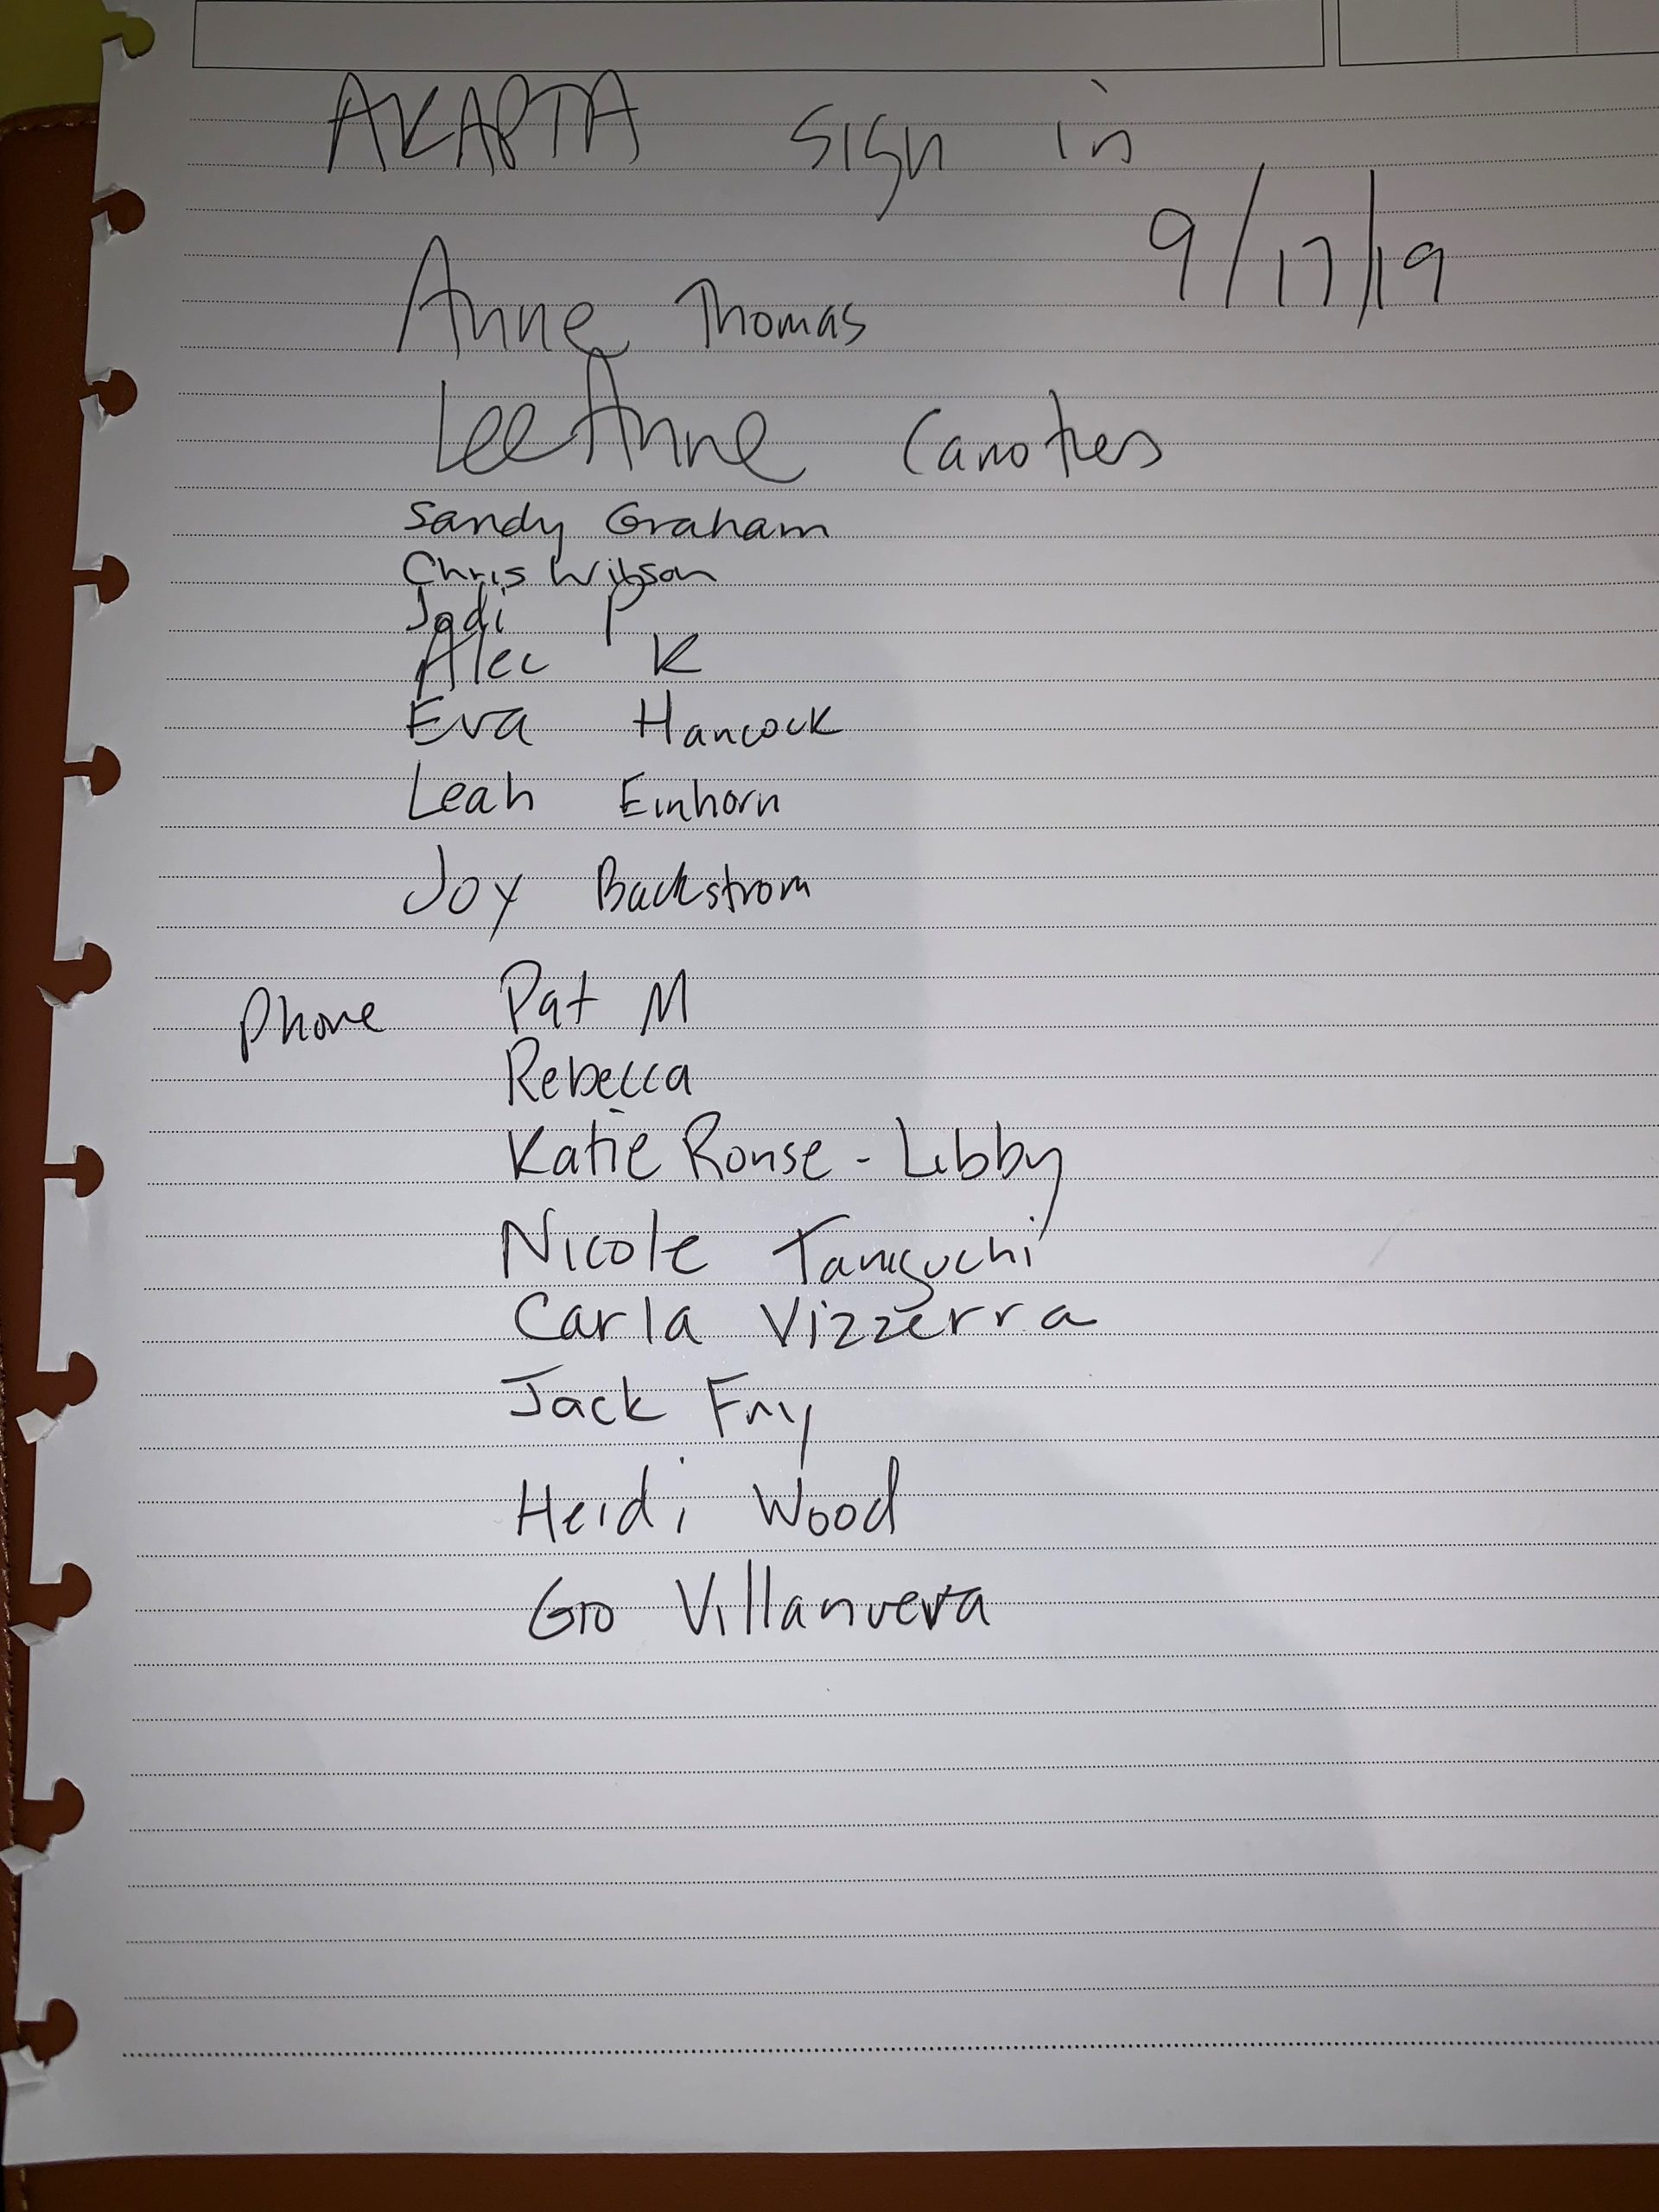 AKAPTA sign in
9/17/19
Anne Thomas
LeeAnne Carrothers
Sandy Graham
Chris Wilson
Jodi P
Alec K
Eva Hancock
Leah Einhorn
Joy Backstrom
Phone Pat M
Rebecca
Katie Ronse - Libby
Nicole Taniguchi
Carla Vizzerra
Jack Fry
Heidi Wood
Gio Villanueva